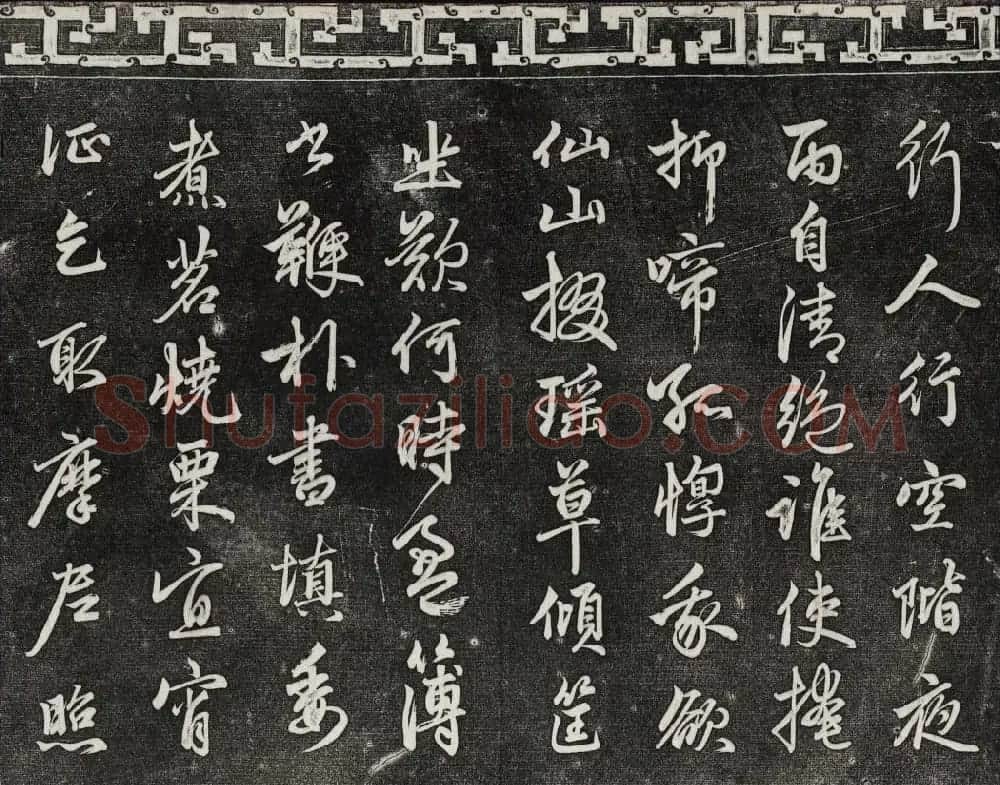 行人行空階夜
雨自清絶誰使掩
抑啼孤惸我欲
仙山掇瑶草傾筐
坐歎何時盈簿
書鞭朴晝填委
煮茗燒栗宜宵
征乞取摩尼照
Shufaziliao.COM